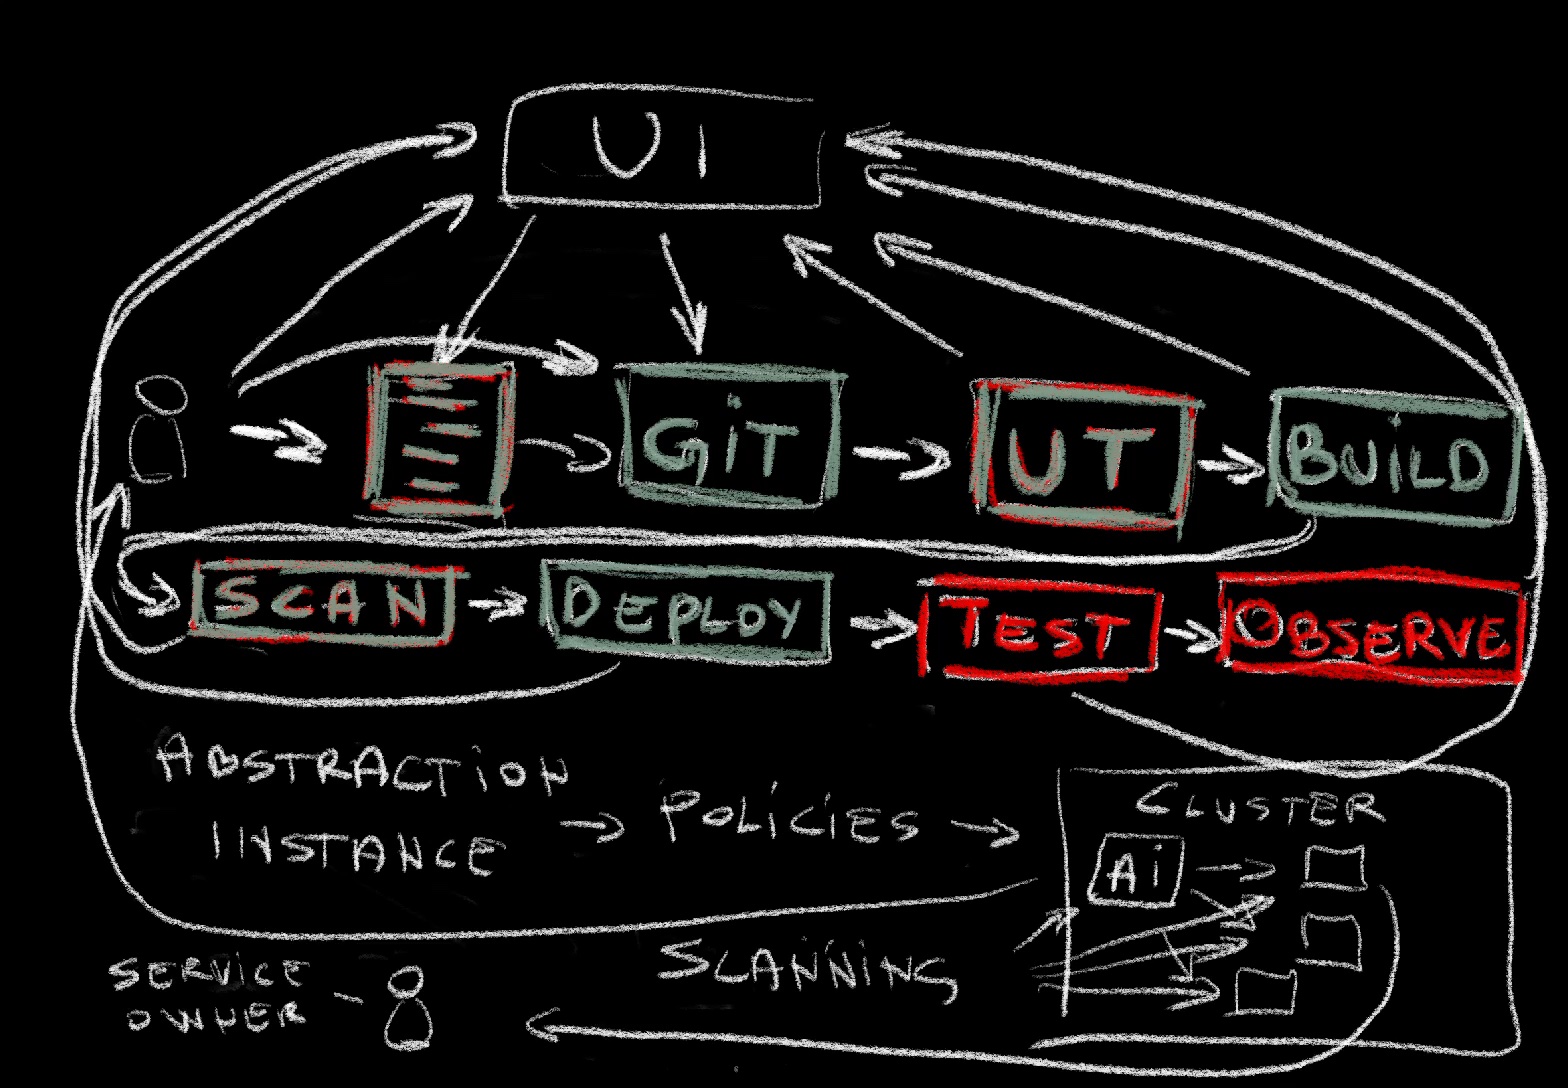 UI
GiT
UT
BUiLD
SCAN
DEPLOY
TEST
OBSERVE
ABSTRACTiON
INSTANCE
POLiCiES
CLUSTER
Ai
SCANNiNG
SERViCE
OWNER